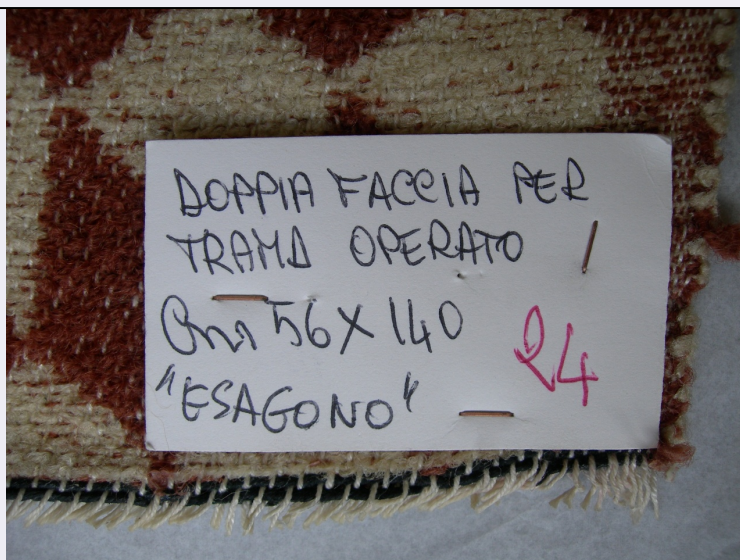 DOPPIA FACCIA PER
TRAMA OPERATO
Cm 56 X 140
24
"ESAGONO"